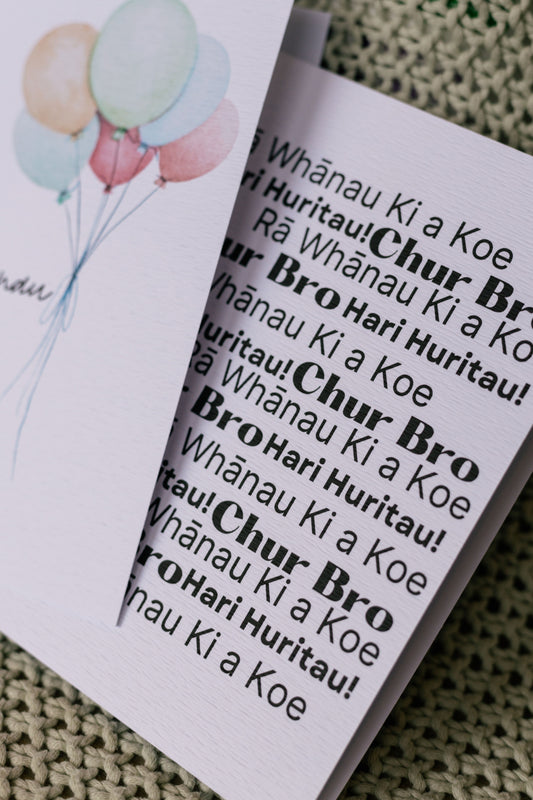 Whānau Ki a Koe
Huritau! Chur Bro
Rā Whānau Ki a Koe
Bro Hari Huritau!
Whānau Ki a Koe
Huritau! Chur Bro
Rā Whānau Ki a Koe
Bro Hari Huritau!
Whānau Ki a Koe
Chur Bro
Whānau Ki a Koe
Bro Hari Huritau!
Ki a Koe